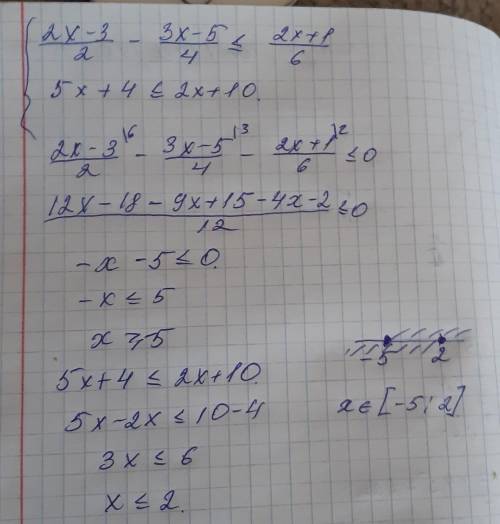 { (2x-3)/2 - (3x-5)/4 ≤ (2x+1)/6
5x+4 ≤ 2x+10.
(2x-3)/2 \6 - (3x-5)/4 \3 - (2x+1)/6 \2 ≤ 0
(12x-18-9x+15-4x-2)/12 ≤ 0
-x -5 ≤ 0.
-x ≤ 5
x ⩾ 5
-5 2
5x+4 ≤ 2x+10.
5x-2x ≤ 10-4
x ∈ [-5; 2]
3x ≤ 6
x ≤ 2.